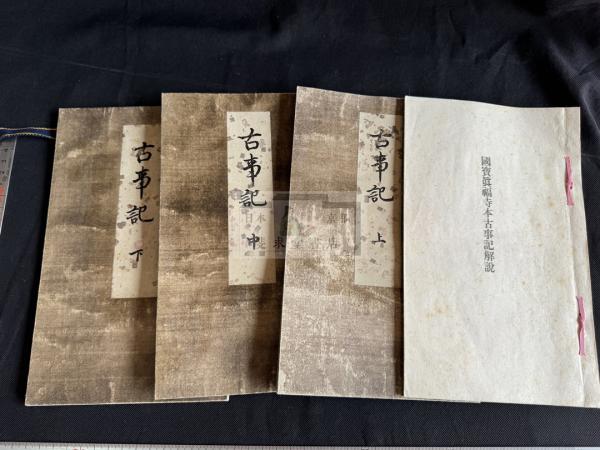 國寶眞福寺本古事記解說
古事記 上
古事記 中
古事記 下